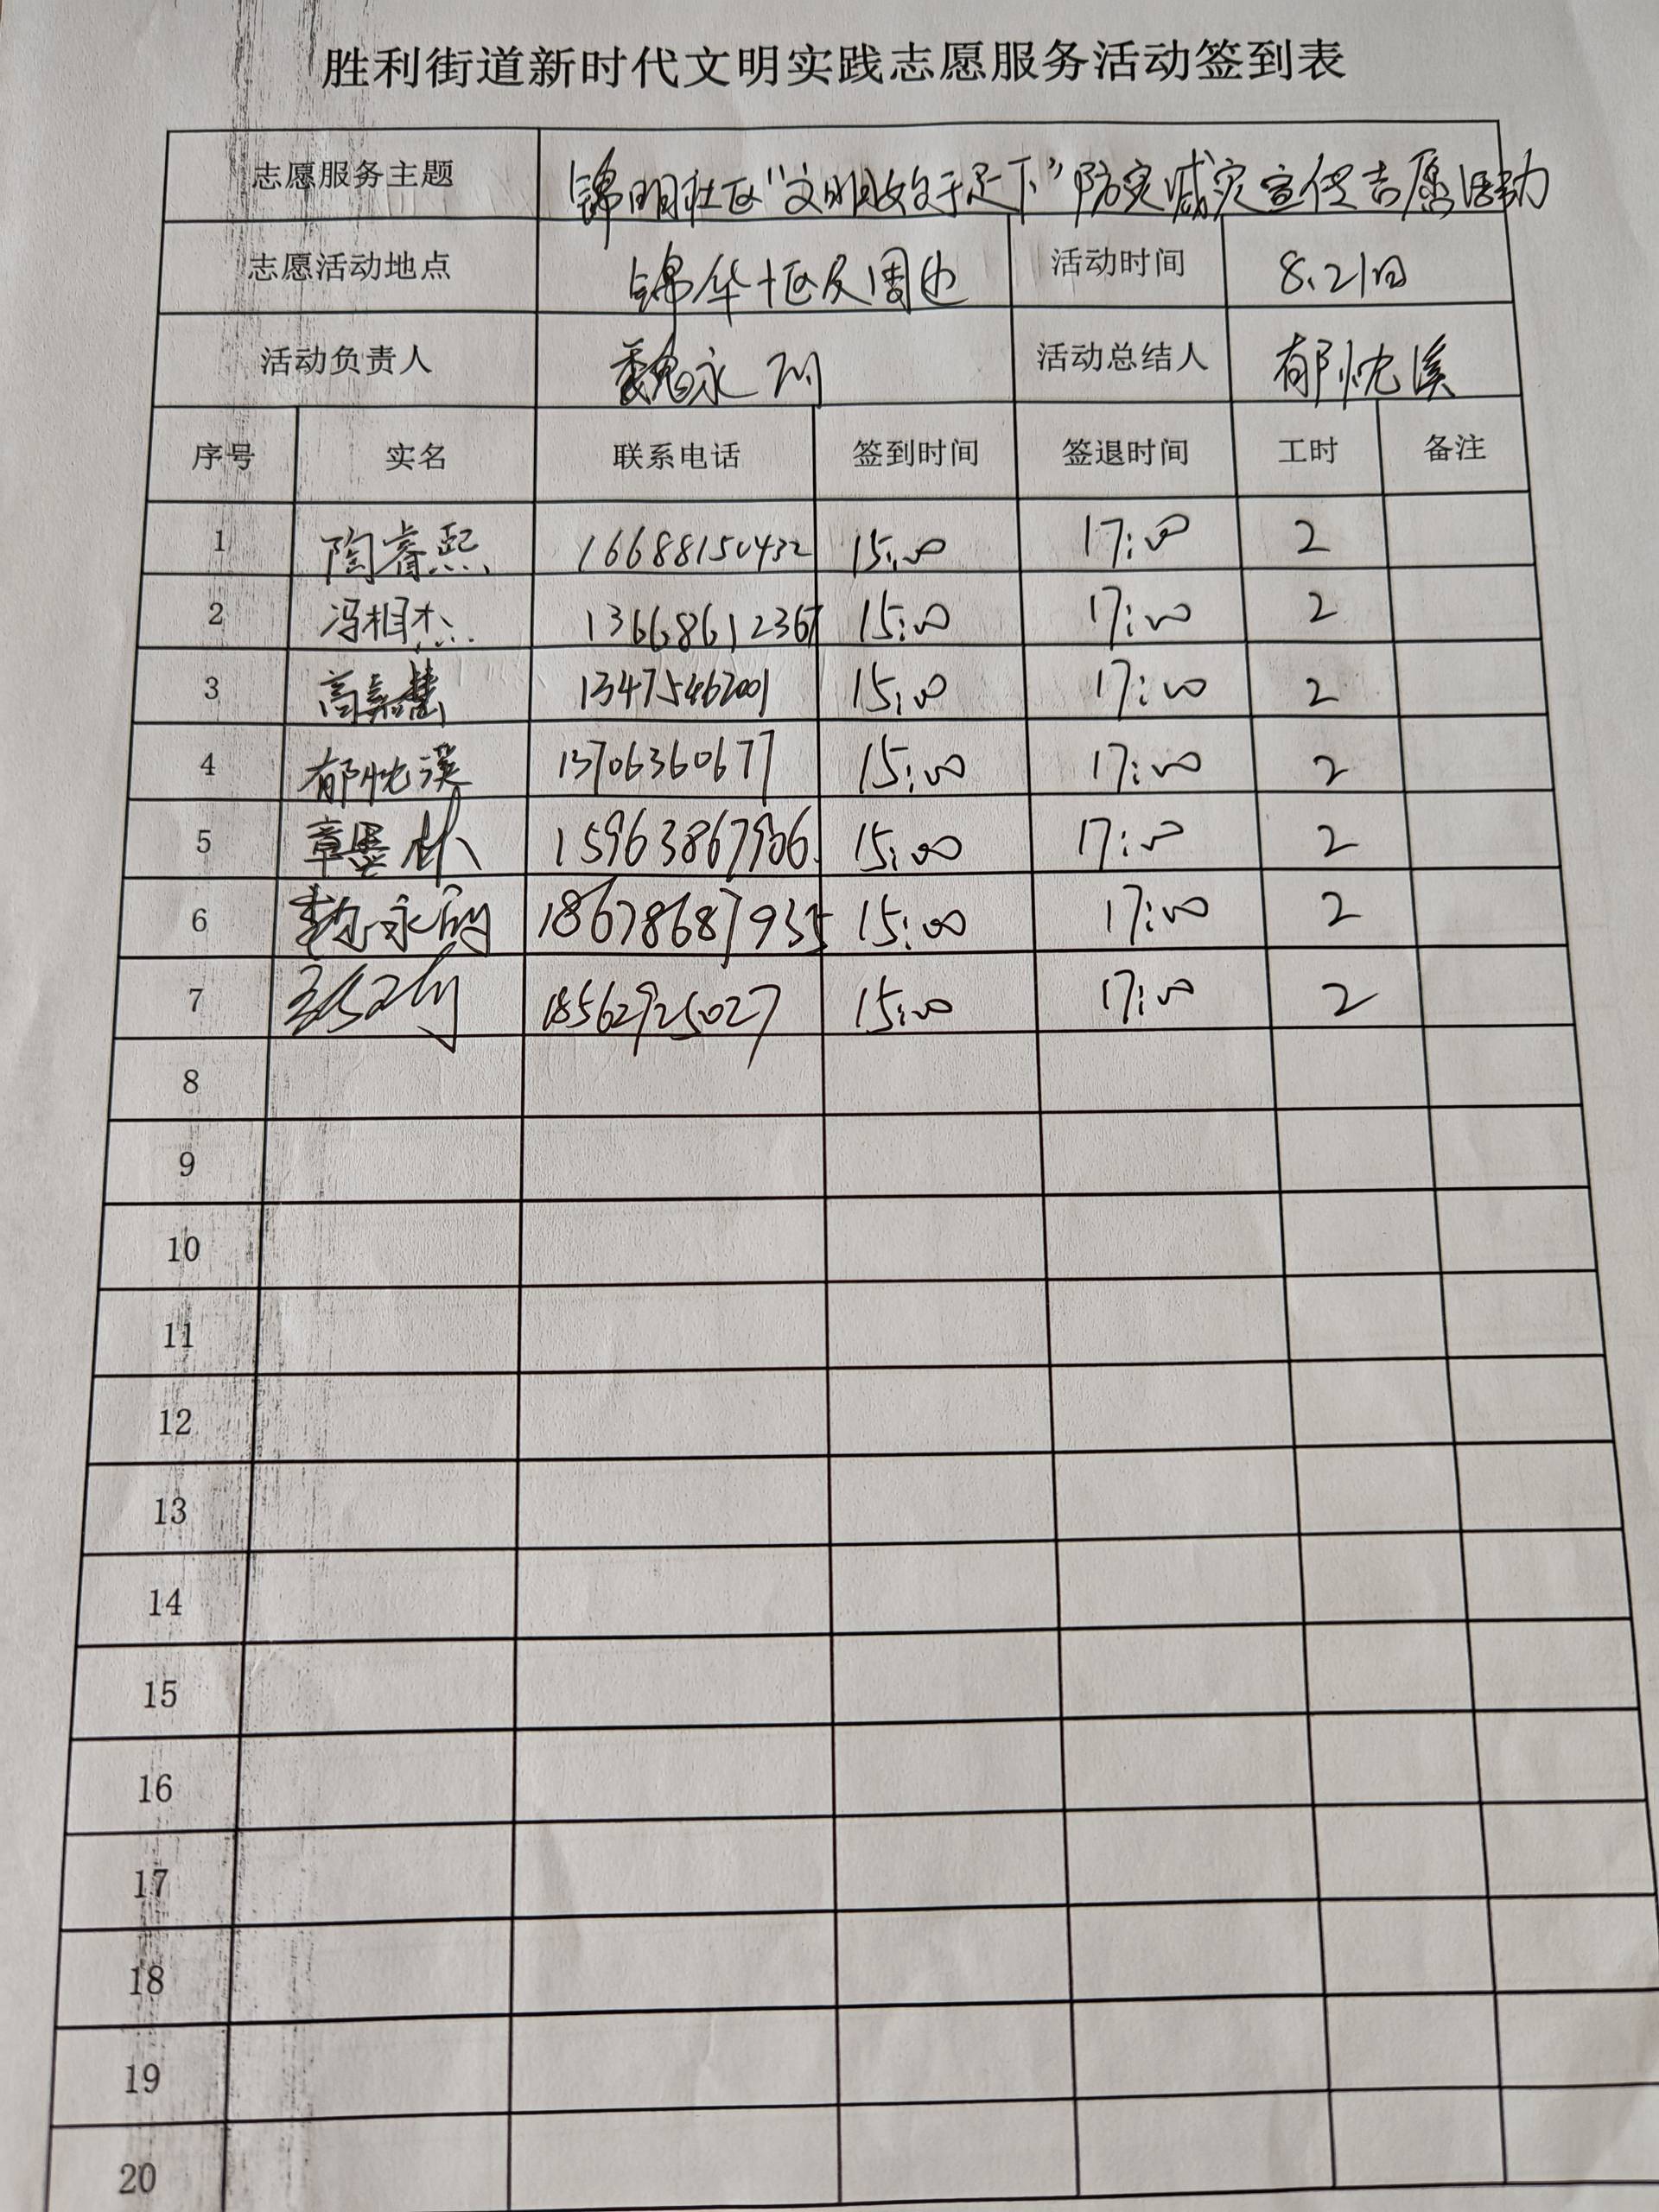 胜利街道新时代文明实践志愿服务活动签到表
志愿服务主题 锦明社区“文明始于足下”防灾减灾宣传志愿活动
志愿活动地点 锦华十区及周边 活动时间 8.21日
活动负责人 魏永刚 活动总结人 郁忱溪
序号 实名 联系电话 签到时间 签退时间 工时 备注
1 陶睿熙 16688150432 15:00 17:00 2
2 冯相杰 13668612367 15:00 17:00 2
3 高嘉慧 13475462001 15:00 17:00 2
4 郁忱溪 13706360677 15:00 17:00 2
5 章墨林 15963867906 15:00 17:00 2
6 18678687935 15:00 17:00 2
7 18562925027 15:00 17:00 2
8
9
10
11
12
13
14
15
16
17
18
19
20